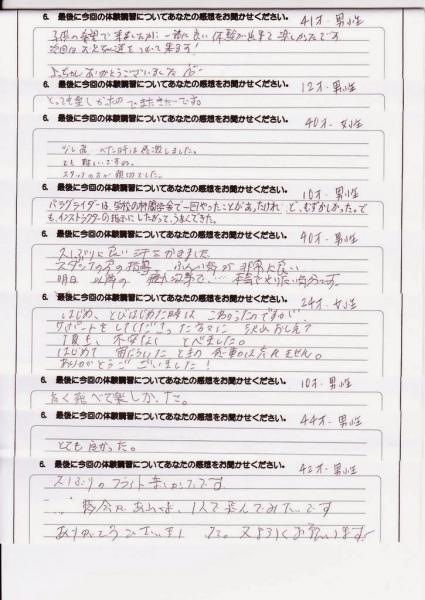 6. 最後に今回の体験講習についてあなたの感想をお聞かせください。 41才・男性
子供の希望で来ましたが、一緒に良い体験が出来て楽しかったです
次回はお友達をつれて来ます!
ありがとうございました
6. 最後に今回の体験講習についてあなたの感想をお聞かせください。 12才・男性
とっても楽しかったのでまたきたいです。
6. 最後に今回の体験講習についてあなたの感想をお聞かせください。 40才・女性
少し飛べた時は感激しました。
とも難しいですね。
スタッフの方が親切でした。
6. 最後に今回の体験講習についてあなたの感想をお聞かせください。 10才・男性
パラグライダーは、学校の林間学舎で一回やったことがあったけれど、むずかしかった。で
も、インストラクターの指示にしたがって、うまくできた。
6. 最後に今回の体験講習についてあなたの感想をお聞かせください。 40才・男性
久しぶりに良い汗をかきました
スタッフの方の指導 ふんい気が非常に良い
明日 以降の 疲れが 本当にやりたい気分です。
6. 最後に今回の体験講習についてあなたの感想をお聞かせください。 24才・女性
はじめ、とびはじめた時は こわかったのですが、
サポートをしてくださったなかに
1度も、不安なく とべました。
はじめて 宙にういた ときの 感動はわすれません。
ありがとうございました!
6. 最後に今回の体験講習についてあなたの感想をお聞かせください。 10才・男性
高く飛べて楽しかった。
6. 最後に今回の体験講習についてあなたの感想をお聞かせください。 44才・男性
とても良かった。
6. 最後に今回の体験講習についてあなたの感想をお聞かせください。 42才・男性
久しぶりのフライト楽しかったです。
機会があれば、1人で飛んでみたいです
ありがとうございました。又よろしくお願いします